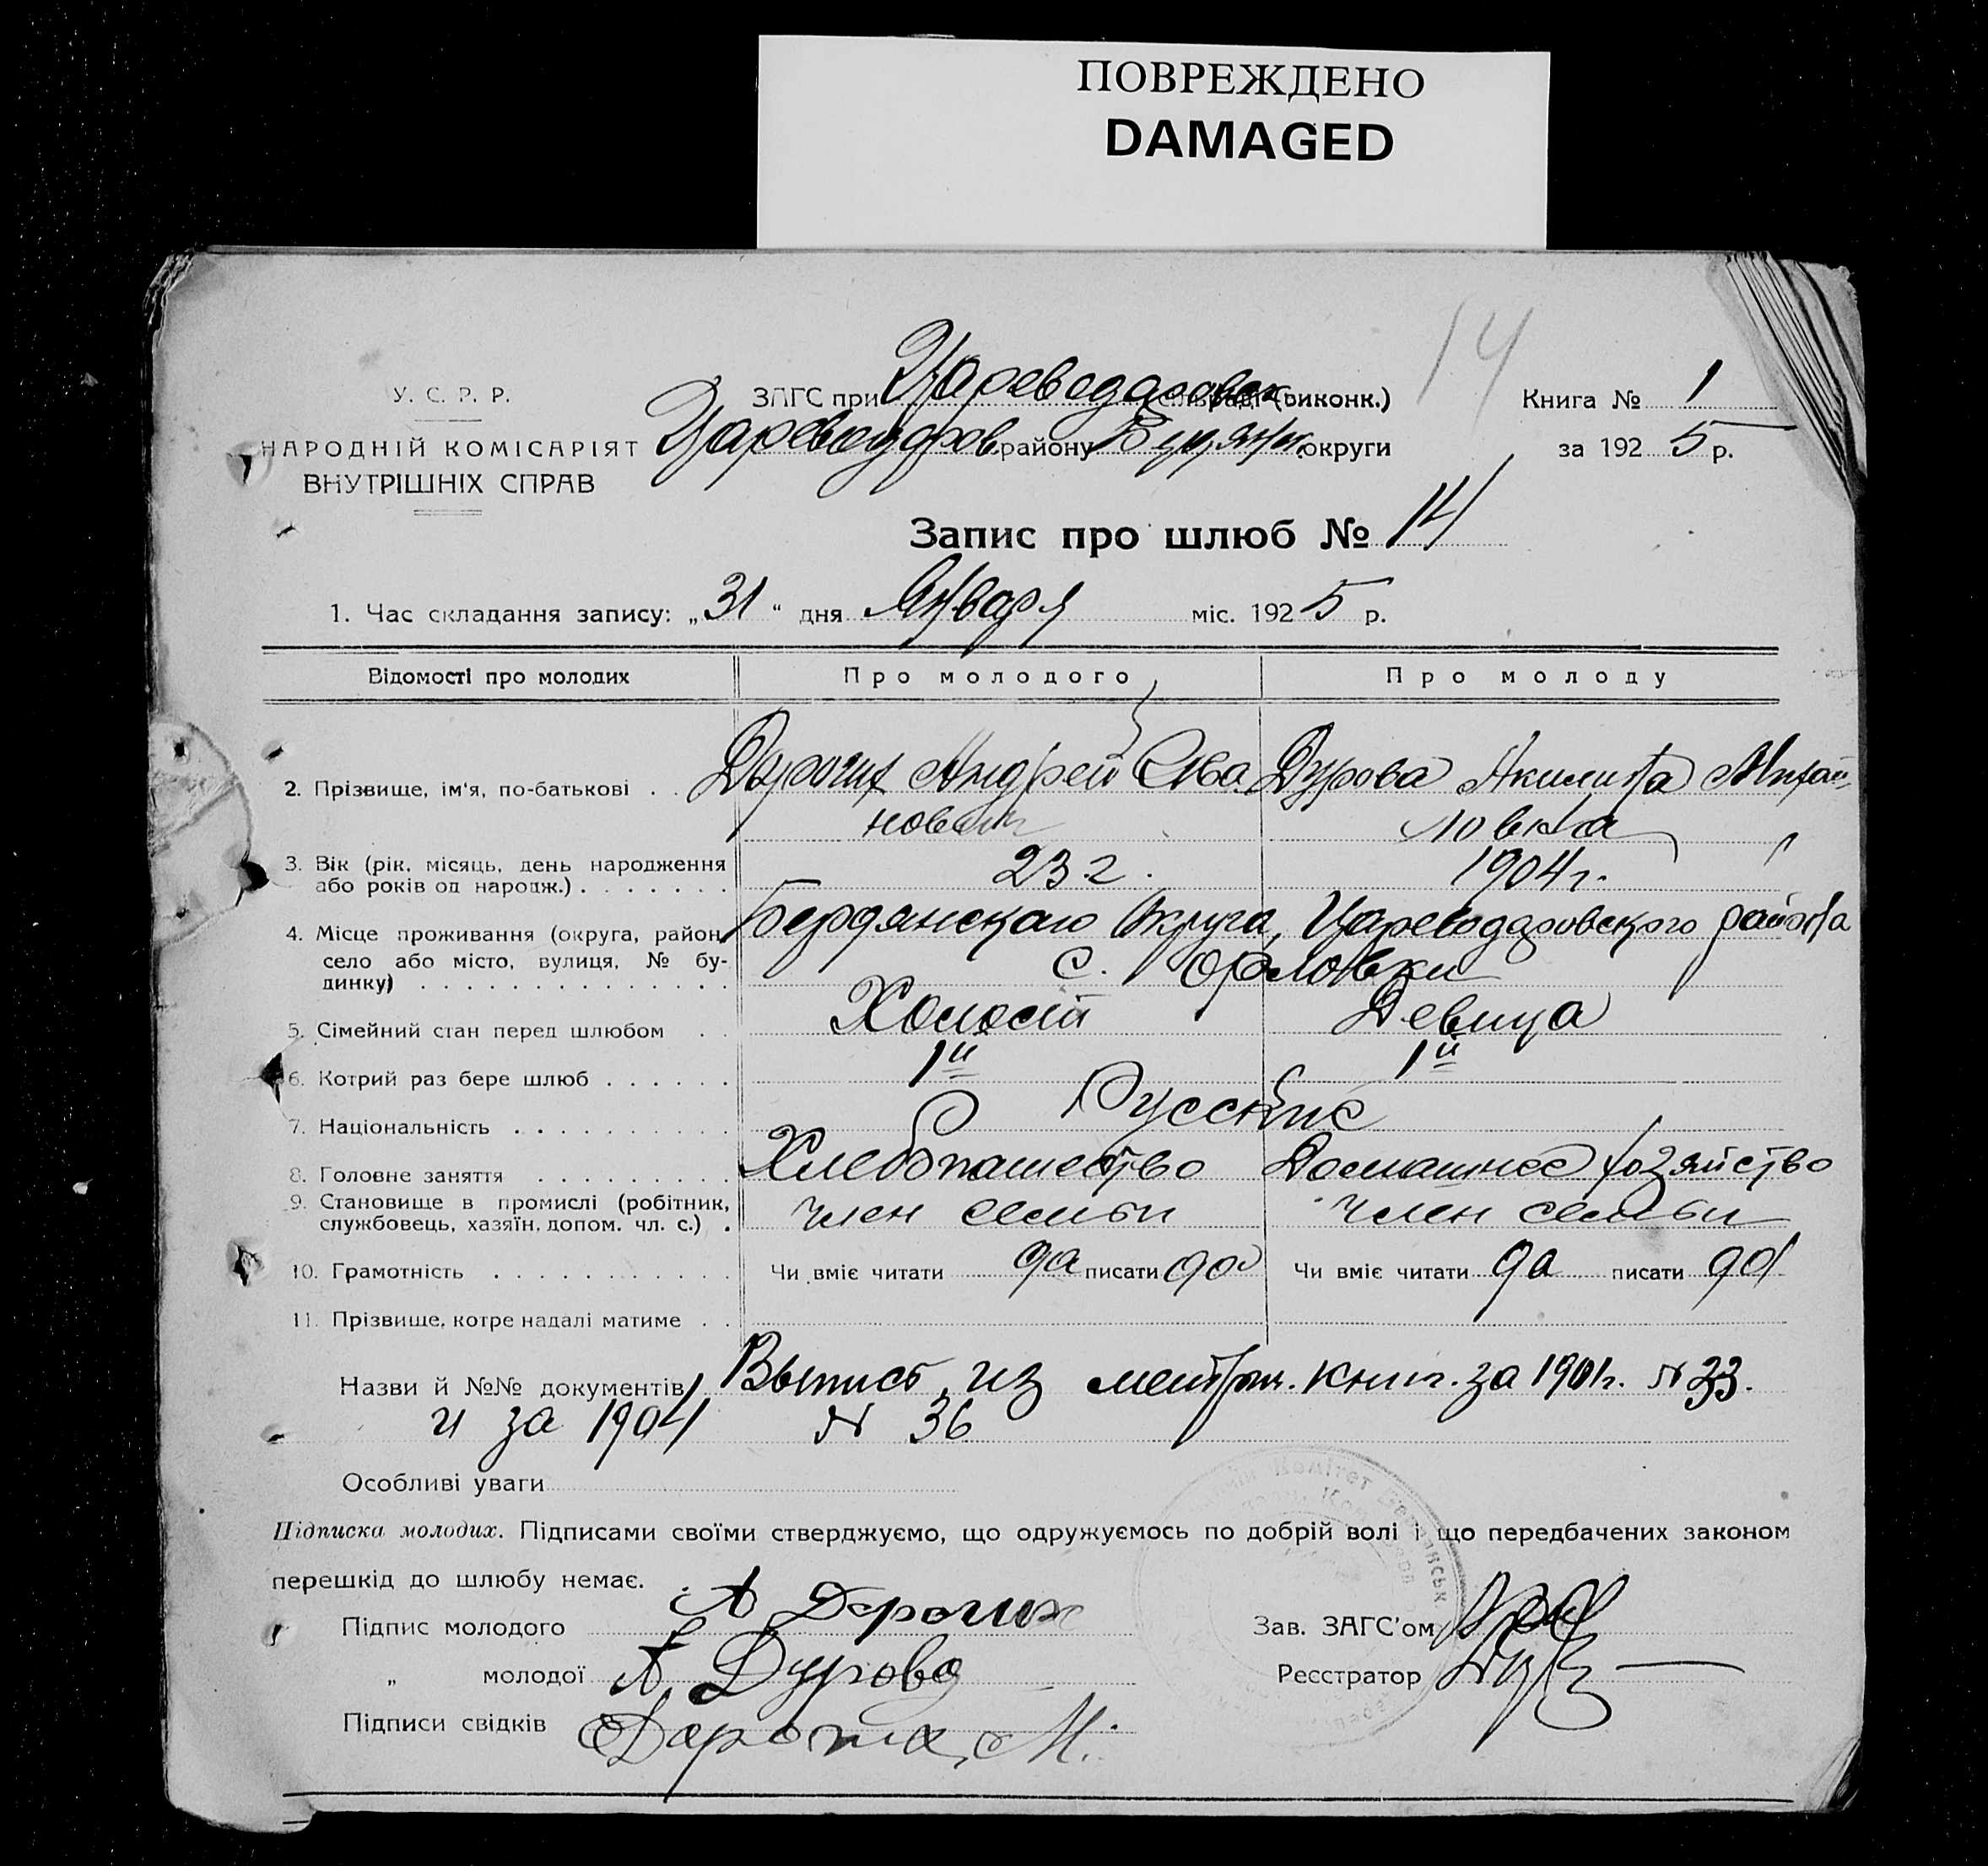 ПОВРЕЖДЕНО
DAMAGED
14
У. С. Р. Р.
НАРОДНІЙ КОМІСАРІЯТ
ВНУТРІШНІХ СПРАВ
ЗАГС при Цареводаровск сельраді (виконк.)
Книга № 1
Цареводаров району Бердянск округи
за 1925 р.
Запис про шлюб № 14
1. Час складання запису: „31“ дня Января міс. 1925 р.
Відомості про молодих Про молодого Про молоду
2. Прізвище, ім'я, по-батькові . . Андрей Ива Дурова Акилина Михай
нович ловна
3. Вік (рік, місяць, день народження
або років од народж.) . . . . . . . 23 г. 1904 г.
4. Місце проживання (округа, район, Бердянскаго Округа, Цареводаровского района
село або місто, вулиця, № бу-
динку) . . . . . . . . . . . . . . с. Орловки
5. Сімейний стан перед шлюбом . . Холост Девица
6. Котрий раз бере шлюб . . . . . . 1й 1й
7. Національність . . . . . . . . . . Русские
8. Головне заняття . . . . . . . . . Хлебопашество Домашнее хозяйство
9. Становище в промислі (робітник,
службовець, хазяїн, допом. чл. с.) . член семьи член семьи
10. Грамотність . . . . . . . . . . . Чи вміє читати да писати да Чи вміє читати да писати да
11. Прізвище, котре надалі матиме . .
Назви й №№ документів Выпись из метрич. книг. за 1901 г. № 33.
и за 1904 № 36
Особливі уваги
Підписка молодих. Підписами своїми стверджуємо, що одружуємось по добрій волі і що передбачених законом
перешкід до шлюбу немає.
Підпис молодого А Дорогих
Зав. ЗАГС'ом
„ молодої А. Дурова
Реєстратор
Підписи свідків Дорогих М.